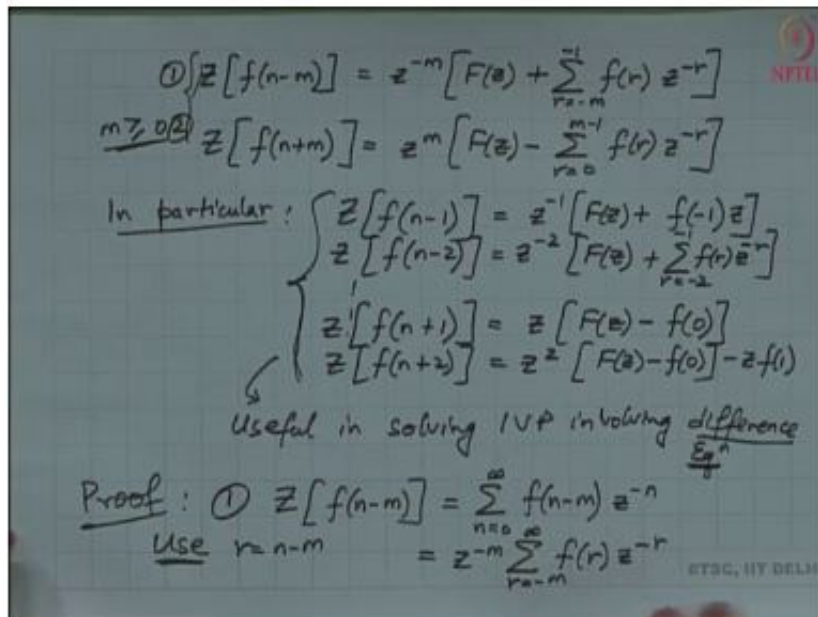 ① Z[f(n-m)] = z^{-m}[F(z) + \sum_{r=-m}^{-1} f(r) z^{-r}]
NPTEL
m ≥ 0 ② Z[f(n+m)] = z^m [F(z) - \sum_{r=0}^{m-1} f(r) z^{-r}]
In particular : Z[f(n-1)] = z^{-1}[F(z) + f(-1) z]
Z[f(n-2)] = z^{-2}[F(z) + \sum_{r=-2}^{-1} f(r) z^{-r}]
Z[f(n+1)] = z[F(z) - f(0)]
Z[f(n+2)] = z^2 [F(z) - f(0)] - z f(1)
Useful in solving IVP involving difference
Eq^n
Proof : ① Z[f(n-m)] = \sum_{n=0}^{∞} f(n-m) z^{-n}
Use r = n-m = z^{-m} \sum_{r=-m}^{∞} f(r) z^{-r}
ETSC, IIT DELHI